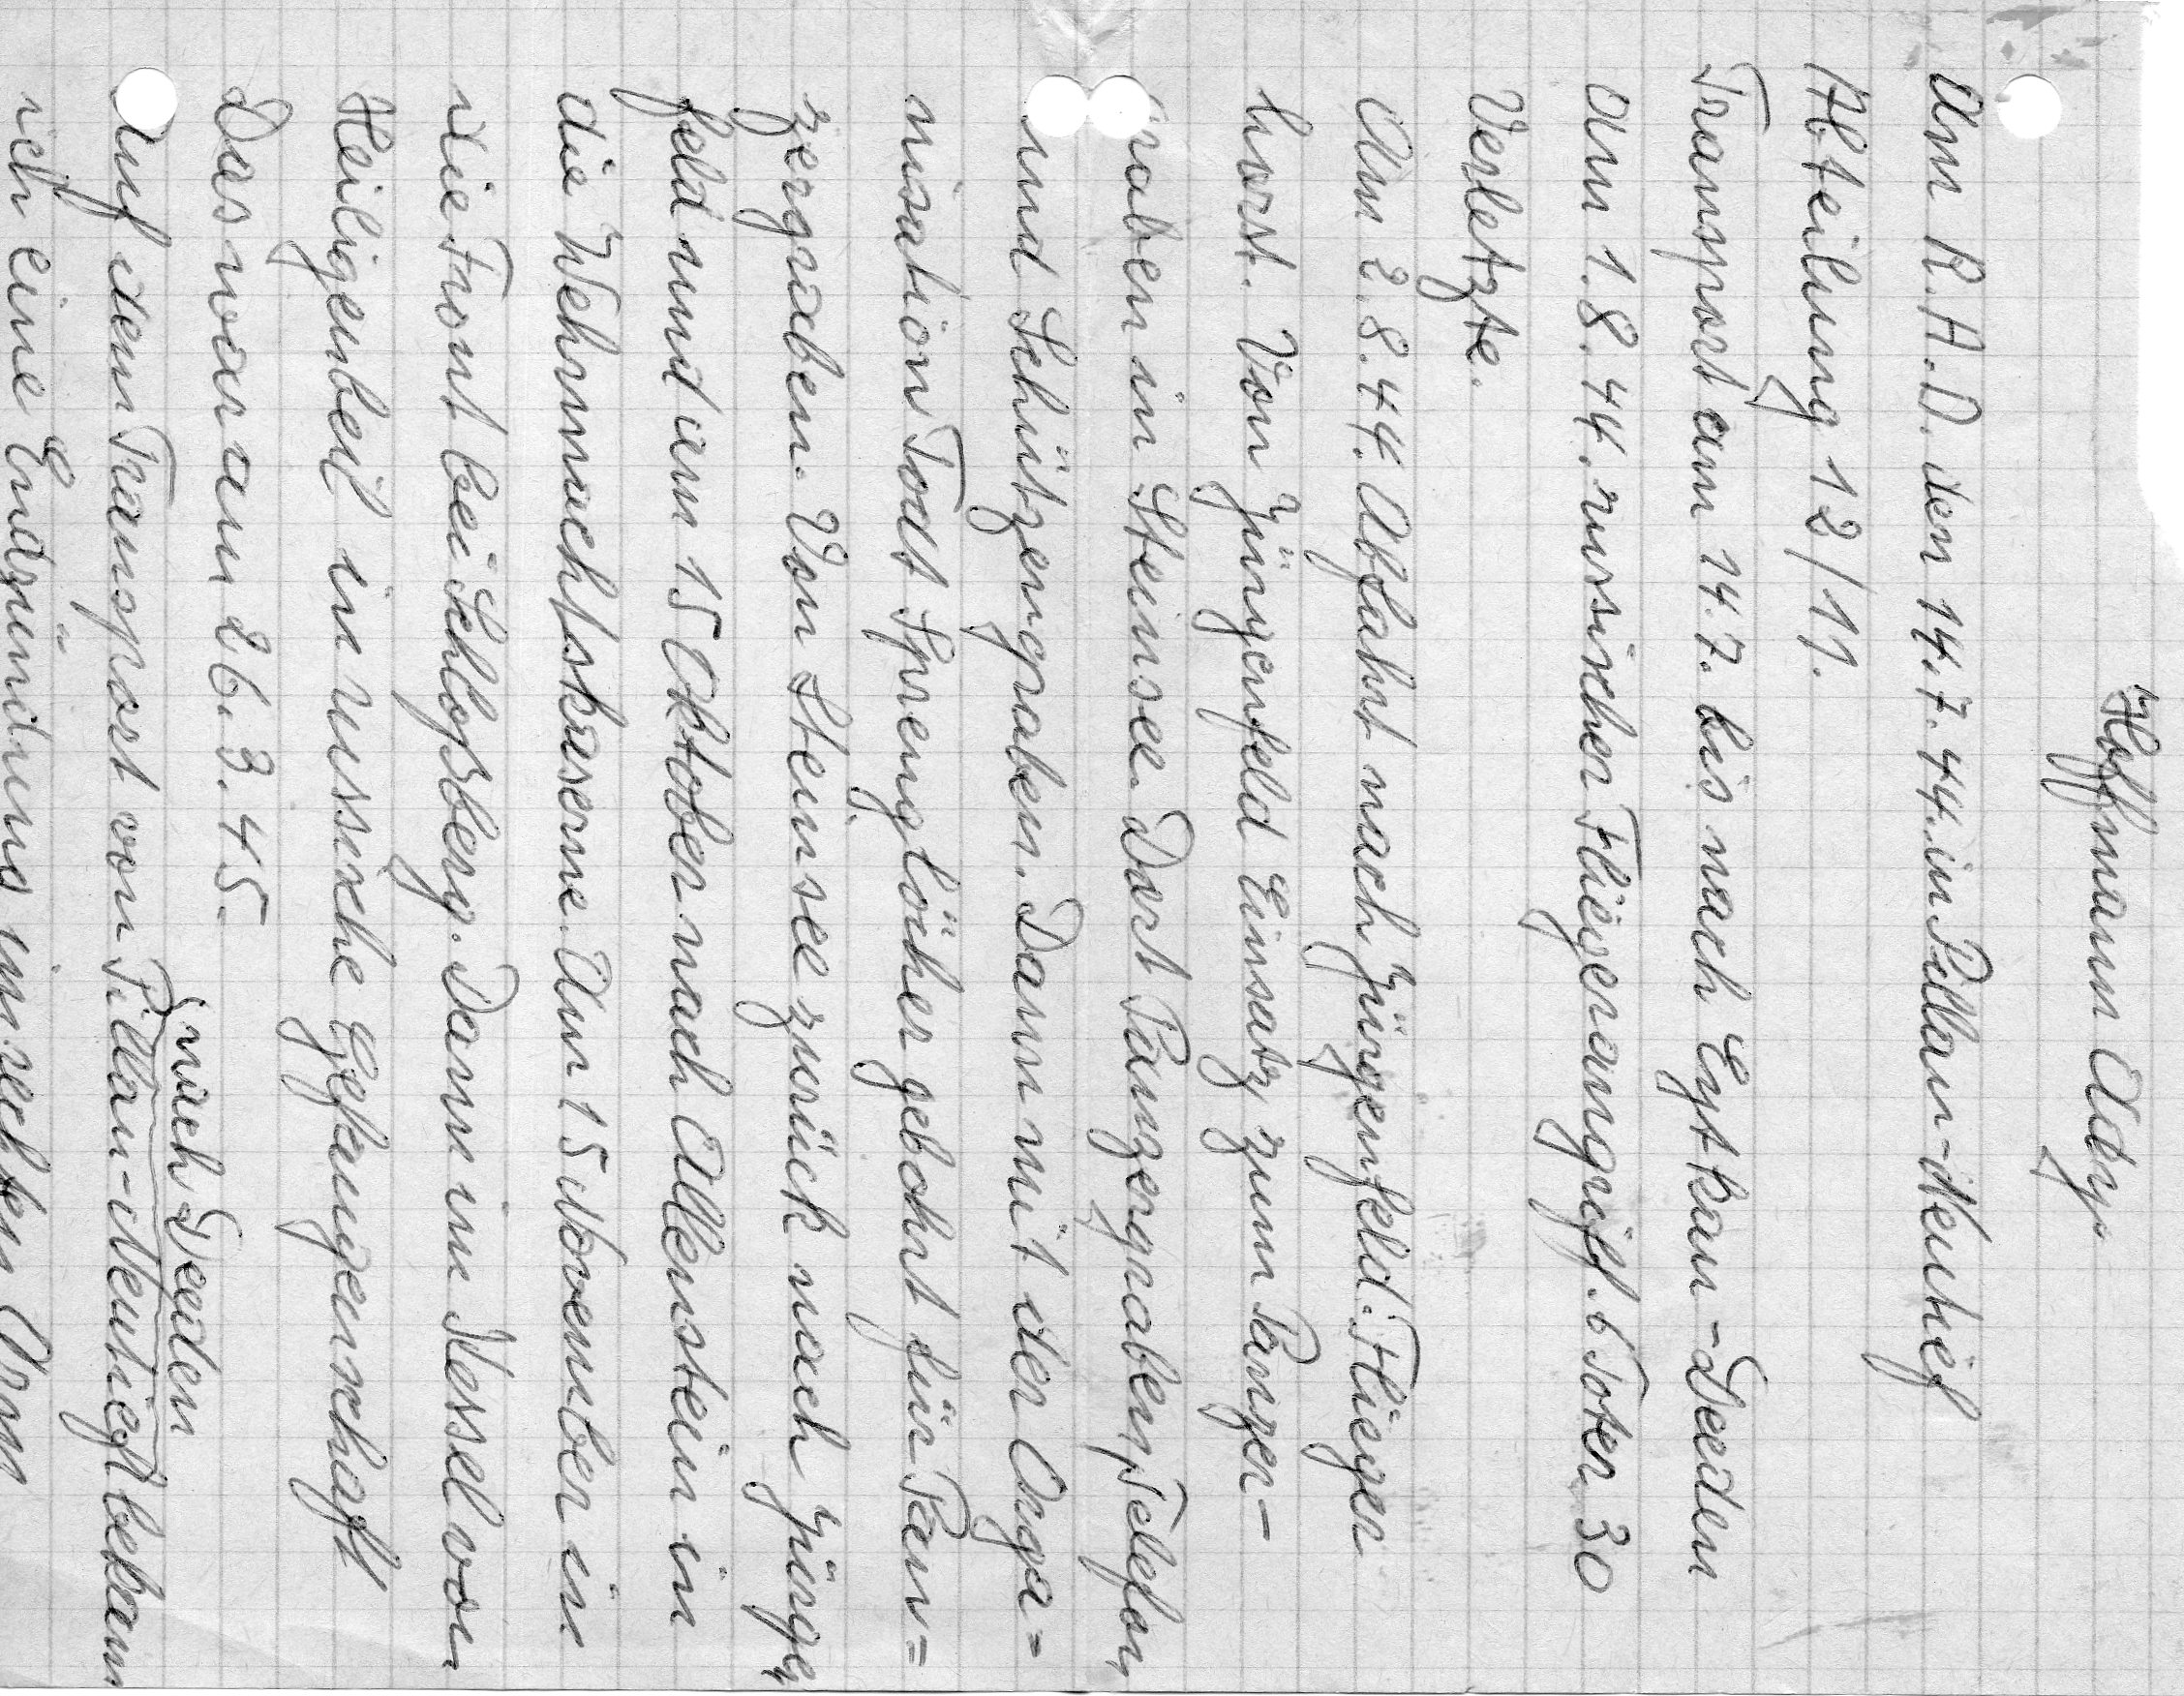 Hoffmann Georg
Am R.A.D. den 14.7.44. in Pillau-Neutief
Abteilung 12/11.
Transport am 14.7. bis nach Eytkau-Deeden
Am 1.8.44. russischer Fliegerangriff. 6 Toter 30
Verletzte.
Am 2.8.44. Abfahrt nach Jürgenfeld. Flieger
horst. Von Jürgenfeld Einsatz zum Panzer-
graben in Steinsee. Dort Panzergraben, Telefon,
und Schützengraben. Dann mit der Orga=
nisation Todt Sprenglöcher gebohrt für Pan=
zergraben. Von Steinsee zurück nach Jürgen
feld und am 15 Oktober nach Allenstein in
die Wehrmachtskaserne. Am 15 November in
die Front bei Schloßberg. Dann im Kessel von
Heiligenbeil in russische Gefangenschaft
Das war am 26.3.45.
nach Deeden
Auf dem Transport von Pillau-Neutieft bekam
ich eine Endzündung im rechten Arm